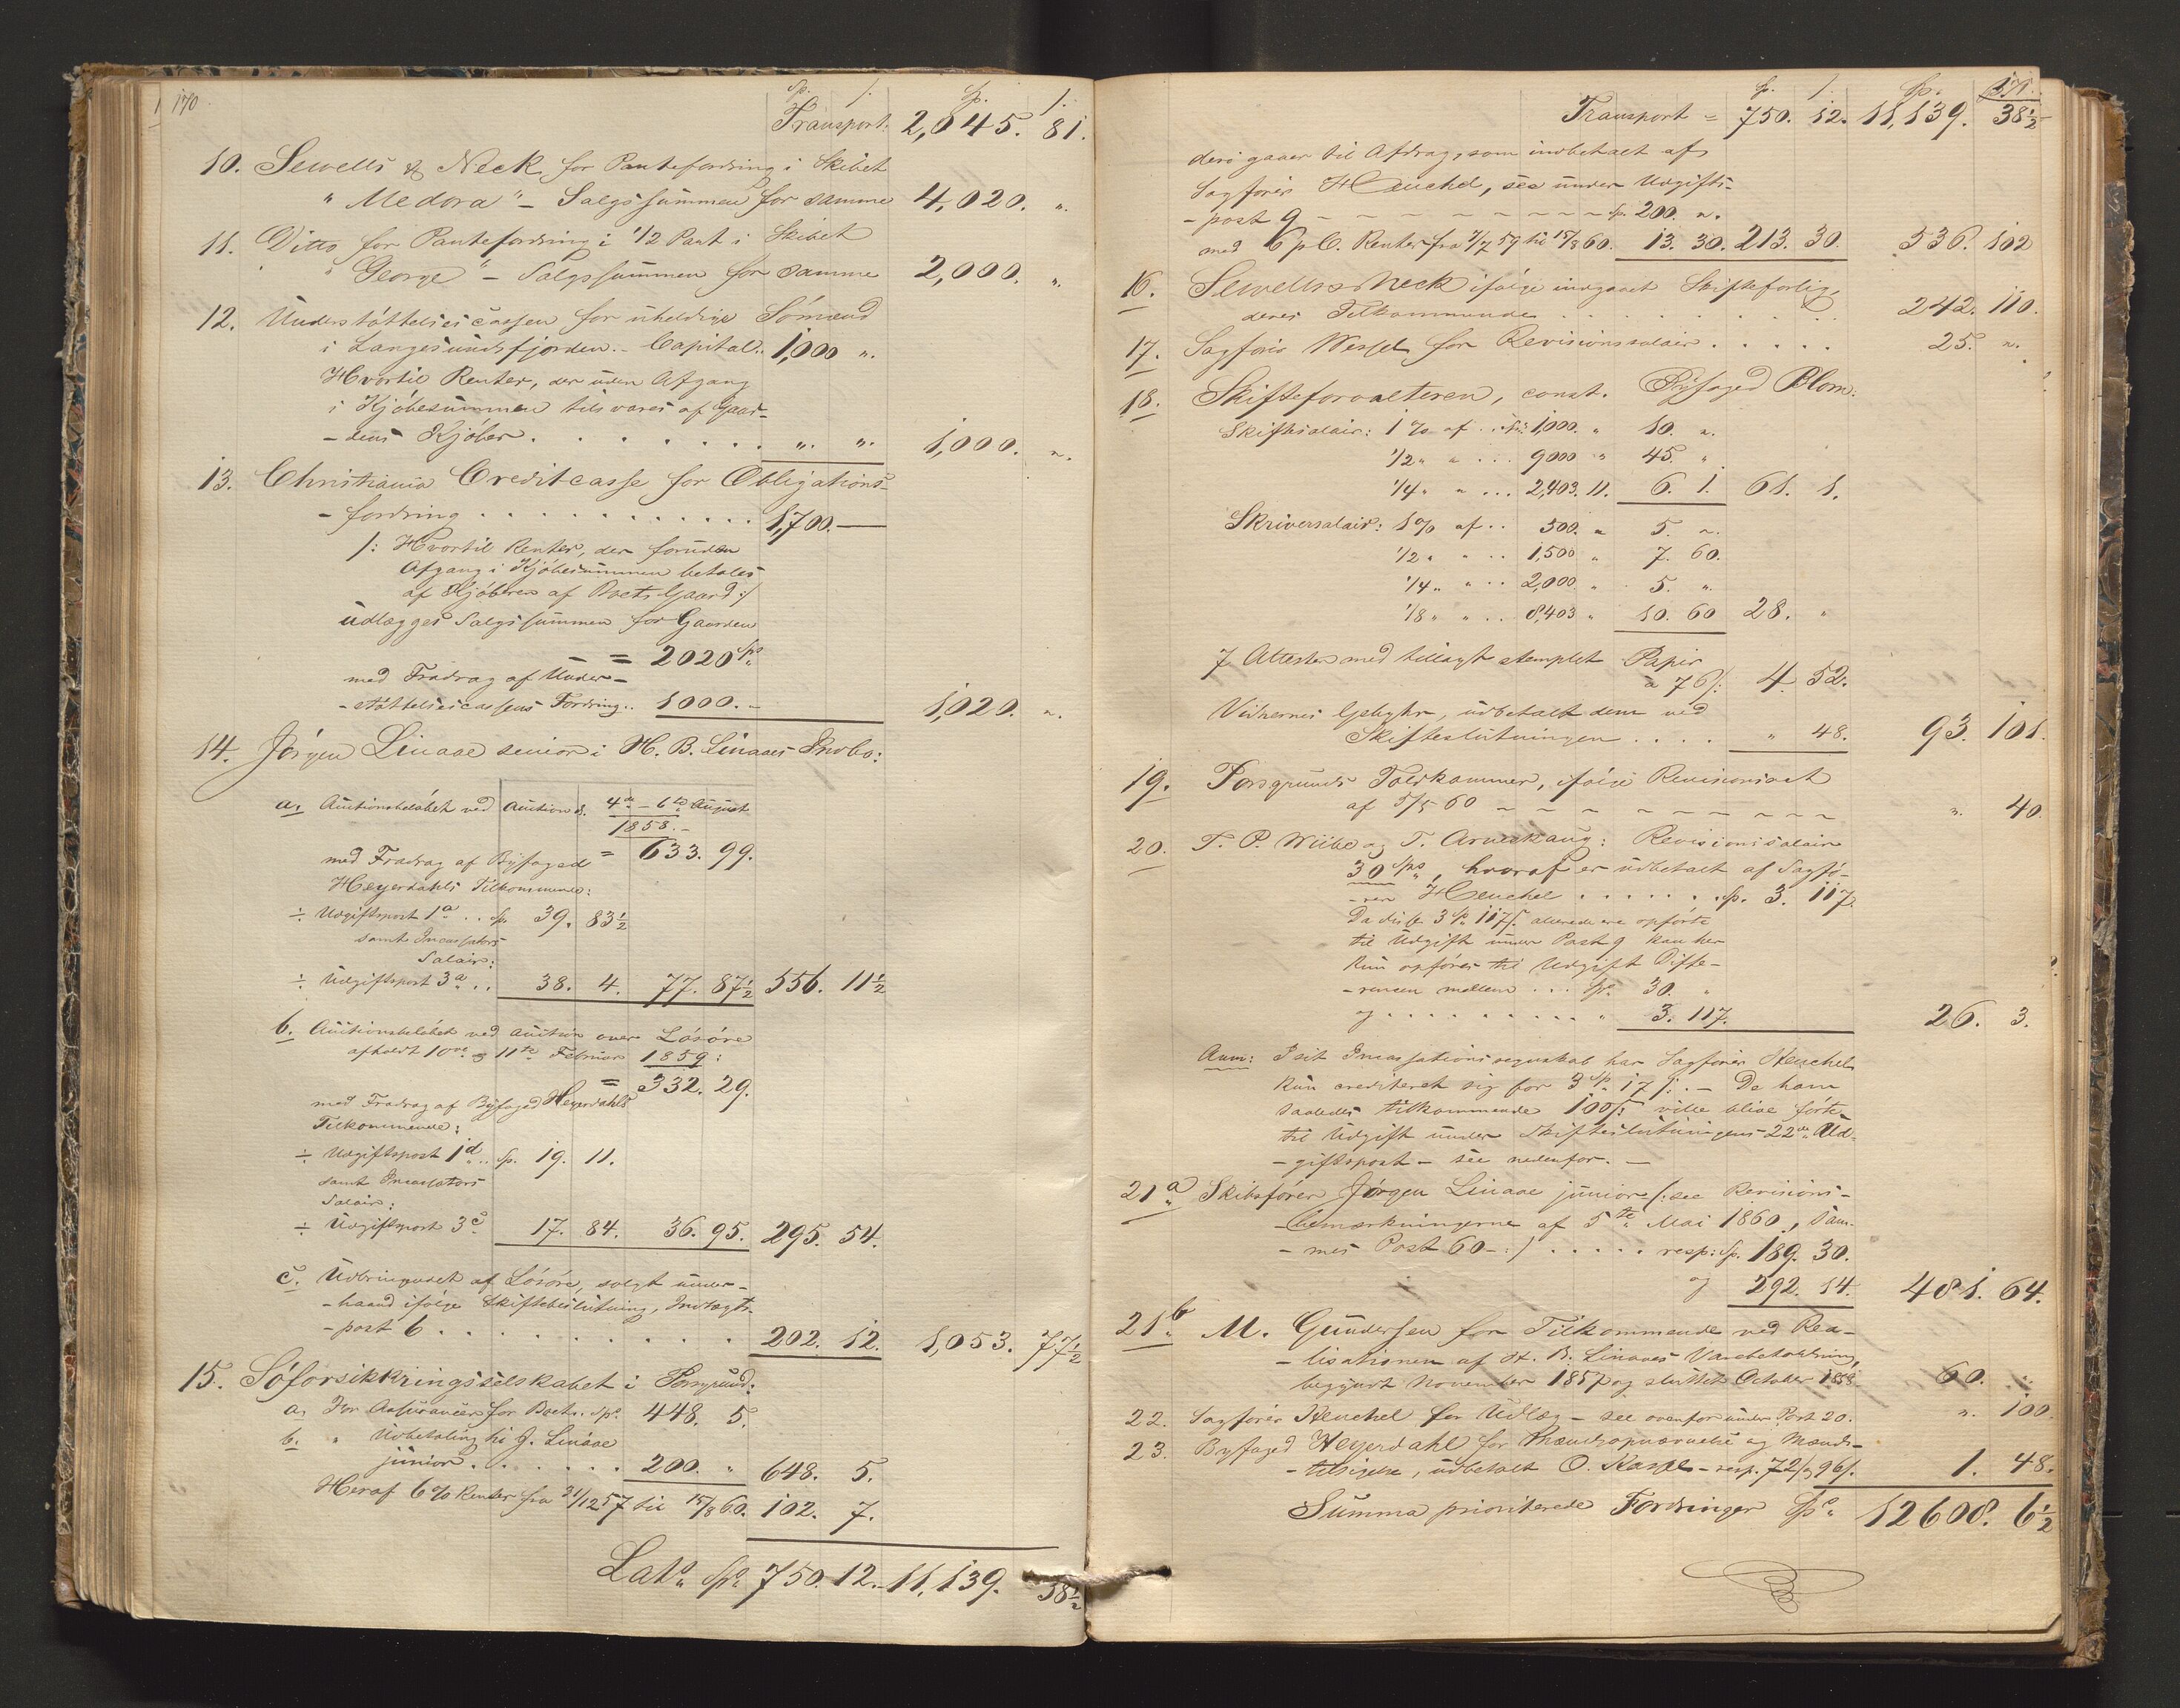 170
Sp. /. Sp. /.
Transport: 2,045. 81.
10. Sewells & Neck for Pantefordring i Skibet
"Medora" - Salgssummen for samme 4,020. ".
11. Ditto for Pantefordring i 1/2 Part i Skibet
"George" - Salgssummen for samme 2,000. ".
12. Understöttelsescassen for uheldige Sömænd
i Langesundsfjorden. - Capital.. 1,000 ".
Hvortil Renter, der uden Afgang
i Kjöbesummen tilsvares af Gaar-
-dens Kjöber . . . . . . . ". ". 1,000. ".
13. Christiania Creditcasse for Obligations-
-fordring . . . . . . . . . . . 1,700. —
/: Hvortil Renter, der foruden
Afgang i Kjöbesummen betales
af Kjöberen af Boets Gaard :/
udlægges Salgssummen for Gaarden
= 2020 Spd
med Fradrag af Under-
-støttelsescassens Fordring.. 1000. - 1,020. ".
14. Jörgen Linaae senior i H. B. Linaaes Indbo:
a. Auctionsbelöbet ved Auction d. 4de - 6te August
1858. -
= 633. 99.
med Fradrag af Byfoged
Heyerdahls Tilkommende:
÷ Udgiftspost 1a .. Sp. 39. 83½
samt Incassators
Salair:
÷ Udgiftspost 3a .. 38. 4. 77. 87½ 556. 11½
b. Auctionsbelöbet ved Auction over Lösöre
afholdt 10de og 11te Februar 1859:
= 332. 29.
med Fradrag af Byfoged Heyerdahls
Tilkommende:
÷ Udgiftspost 1d .. Sp. 19. 11.
samt Incassators
Salair:
÷ Udgiftspost 3c 17. 84. 36. 95. 295. 54.
c. Udbringendet af Lösöre, solgt under-
-haand ifölge Skiftebeslutning, Indtægts-
-post 6 . . . . . . . . . . 202. 12. 1,053. 77½
15. Söforsikkringsselskabet i Porsgrund:
a. For Assurancer for Boet.. Spd. 448. 5.
b. " Udbetaling til J. Linaae
junior . . . . . . 200. " 648. 5.
Heraf 6 % Renter fra 31/12 57 til 15/8 60. 102. 7.
Lats. Spd. 750. 12. 11,139. 38½
171.
Sp. /. Sp.
Transport = 750. 12. 11,139. 38½
deri gaaer til Afdrag, som indbetalt af
Sagförer Heuchel, see under Udgifts-
-post 9 - - - - - - - - - Sp. 200. ".
med 6 p C. Renter fra 1/7 59 til 15/8 60. 13. 30. 213. 30. 536. 102
16. Sewells & Neck ifölge indgaaet Skifteforlig,
deres Tilkommende . . . . . . . . . 242. 110.
17. Sagförer Wessel for Revisionssalair . . . . . 25. ".
18. Skifteforvalteren, const. Byfoged Blom:
Skiftesalair: 1 % af .. Sp. 1,000. " 10. ".
1/2 " " ... 9000 " 45. "
1/4 " " ... 2,403. 11. 6. 1. 61. 1.
Skriversalair: 1 % af .. 500. " 5. ".
1/2 " " .. 1,500 " 7. 60.
1/4 " " .. 2,000. " 5. ".
1/8 " " .. 8,403 " 10. 60 28. "
7 Attester med tillagt stemplet Papir
a 76 /: 4. 52.
Vidnernes Gebyhr, udbetalt dem ved
Skifteslutningen . . . . " 48. 93. 101.
19. Porsgrunds Toldkammer, ifölge Revisionsact
af 5/5 60 - - - - - - - - - ". 40.
20. T. P. Wiibe og T. Arneskaug: Revisionssalair
30 Spd., hvoraf er udbetalt af Sagfö-
-rer Heuchel . . . . . . Sp. 3. 117.
Da disse 3 Sp. 117 /. allerede ere opförte
til Udgift under Post 9 kan her
kun opföres til Udgift Diffe-
-rencen mellem . . . Spd. 30. "
og . . . . . . . . . " 3. 117. 26. 3.
Anm: I sit Incassationsregnskab har Sagförer Heuchel
kun crediteret sig for 3 Sp. 17 /: . - De ham
saaledes tilkommende 100 /: ville blive förte
til Udgift under Skifteslutningens 22de Ud-
-giftspost - see nedenfor. —
21a Skibsförer Jörgen Linaae junior /: see Revisions-
-bemærkningerne af 5te Mai 1860, sam-
-mes Post 60 - :/ . . . . . resp: Sp. 189. 30.
og 292. 14. 481. 64.
21b M. Gundersen for Tilkommende ved Rea-
-lisationen af H. B. Linaaes Varebeholdning,
begyndt November 1857 og sluttet October 1858 60. "
22. Sagförer Heuchel for Udlæg - see ovenfor under Post 20. ". 100.
23. Byfoged Heyerdahl for Mændsopnævnelse og Mænds-
-tilsigelse, udbetalt O. Kasse - resp. 72 / og 96 /. 1. 48.
Summa prioriterede Fordringer Spd. 12608. 6½